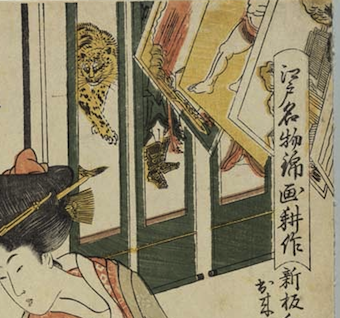 江戸名物錦画耕作
新板